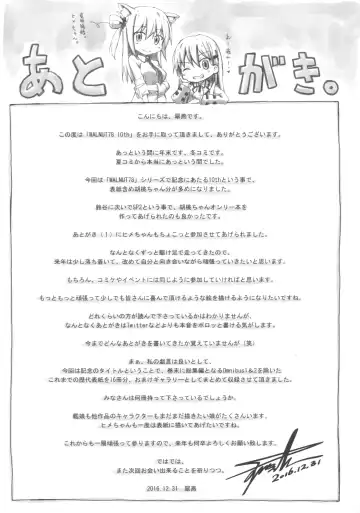 あとがき。
こんにちは、翠燕です。
この度は「WALNUT78 10th」をお手に取って頂きまして、ありがとうございます。
あっという間に年末です。冬コミです。
夏コミから本当にあっという間でした。
今回は「WALNUT78」シリーズで記念にあたる10thという事で、
表紙含め胡桃ちゃん分が多めになりました。
鈴谷に次いでGP2という事で、胡桃ちゃんオンリー本を
作ってあげられたのも良かったです。
あとがき(!)にヒメちゃんもちょこっと参加させてあげられました。
なんとなくずっと駆け足で走ってきたので、
来年は少し落ち着いて、改めて自分と向き合いながら頑張っていきたいと思います。
もちろん、コミケやイベントには同じように参加していければと思います。
もっともっと頑張って少しでも皆さんに喜んで頂けるような絵を描けるようになりたいですね。
どれくらいの方が読んで下さっているかはわかりませんが、
なんとなくあとがきはTwitterなどよりも本音をポロッと書ける気がします。
今までどんなあとがきを書いてきたか覚えていませんが(笑)
まぁ、私の戯言は良いとして、
今回は記念のタイトルということで、巻末に総集編となるOmnibus1&2を除いた
これまでの歴代表紙を16冊分、おまけギャラリーとしてまとめて収録させて頂きました。
みなさんは何冊持って下さっているでしょうか。
艦娘も他作品のキャラクターもまだまだ描きたい娘がたくさんいます。
ヒメちゃんも一度は表紙に描いてあげたいですね。
これからも一層頑張って参りますので、来年も何卒よろしくお願い致します。
ではでは、
また次回お会い出来ることを祈りつつ。
2016.12.31
2016.12.31